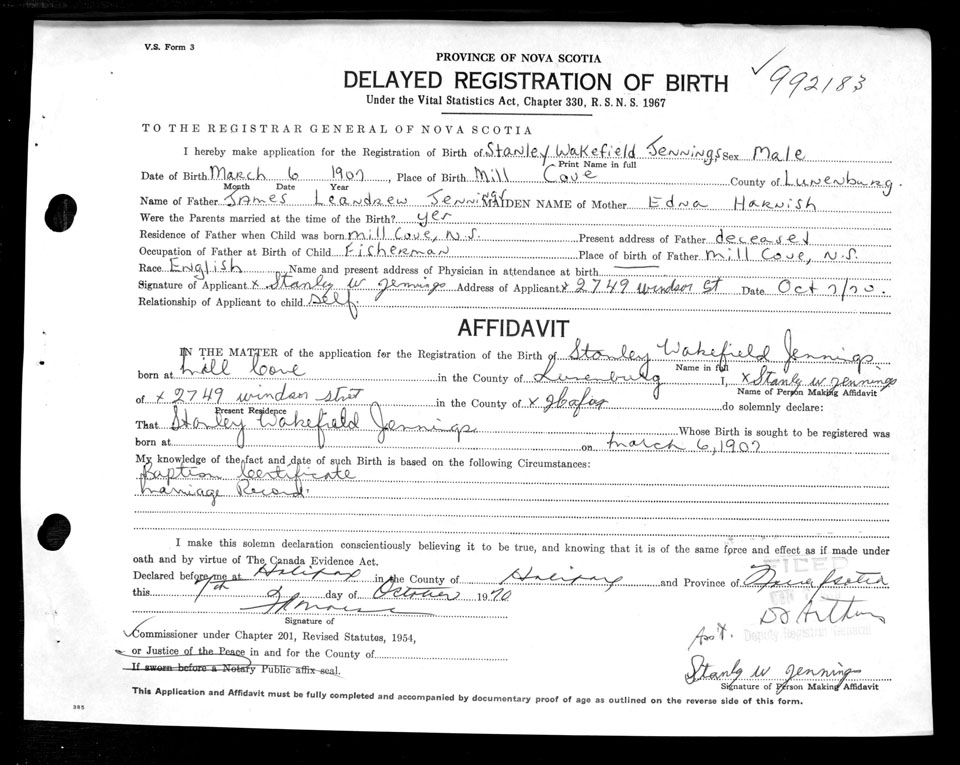 V.S. Form 3
PROVINCE OF NOVA SCOTIA
DELAYED REGISTRATION OF BIRTH
✓992183
Under the Vital Statistics Act, Chapter 330, R.S.N.S. 1967
TO THE REGISTRAR GENERAL OF NOVA SCOTIA
I hereby make application for the Registration of Birth of Stanley Wakefield Jennings Sex Male
Print Name in full
Date of Birth March 6 1907, Place of Birth Mill Cove County of Lunenburg.
Month Date Year
Name of Father James Leandrew Jennings MAIDEN NAME of Mother Edna Harnish
Were the Parents married at the time of the Birth? yes
Residence of Father when Child was born Mill Cove, N.S. Present address of Father deceased
Occupation of Father at Birth of Child Fisherman Place of birth of Father Mill Cove, N.S.
Race English Name and present address of Physician in attendance at birth
Signature of Applicant x Stanly W Jennings Address of Applicant x 2749 windsor St Date Oct 7/70.
Relationship of Applicant to child Self.
AFFIDAVIT
IN THE MATTER of the application for the Registration of the Birth of Stanley Wakefield Jennings
Name in full
born at Mill Cove in the County of Lunenburg I, x Stanly W Jennings
Name of Person Making Affidavit
of x 2749 windsor in the County of x do solemnly declare:
Present Residence
That Stanley Wakefield Jennings Whose Birth is sought to be registered was
born at on March 6, 1907
My knowledge of the fact and date of such Birth is based on the following Circumstances:
Baptism Certificate
Marriage Record.
I make this solemn declaration conscientiously believing it to be true, and knowing that it is of the same force and effect as if made under
oath and by virtue of The Canada Evidence Act.
Declared before me at Halifax in the County of Halifax and Province of Nova Scotia
this 7th day of October 1970
Signature of
✓Commissioner under Chapter 201, Revised Statutes, 1954,
or Justice of the Peace in and for the County of
If sworn before a Notary Public affix seal.
Ass't. Deputy Registrar General
Stanly W Jennings
Signature of Person Making Affidavit
This Application and Affidavit must be fully completed and accompanied by documentary proof of age as outlined on the reverse side of this form.
385